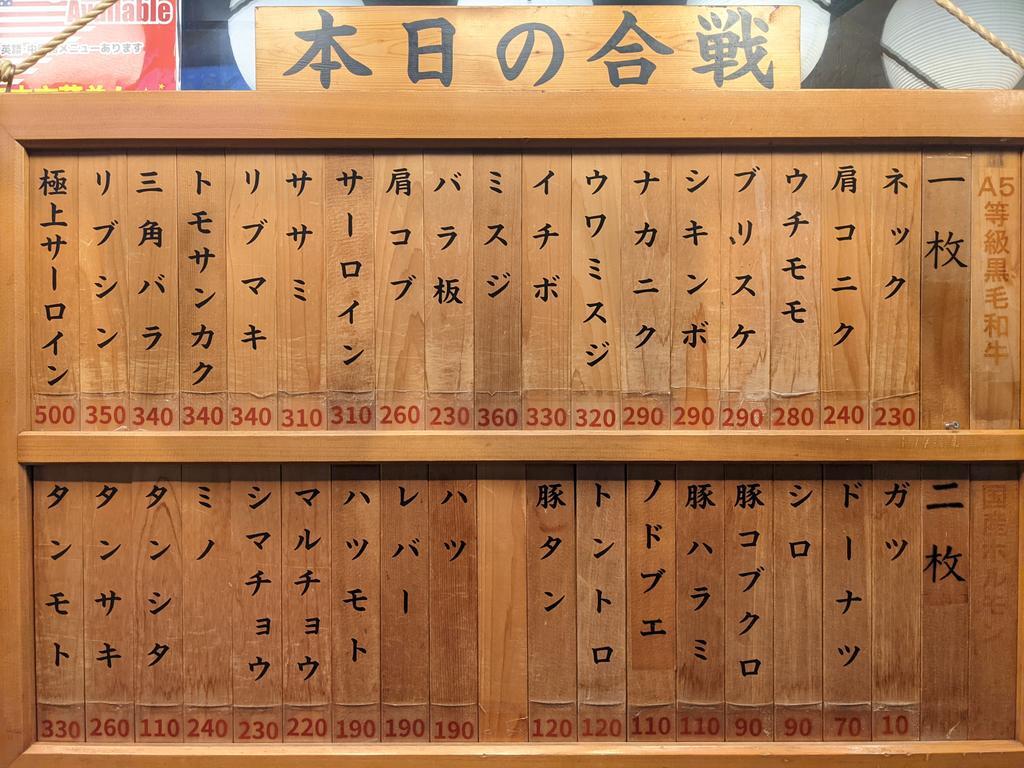 Available
英語 中 メニューあります
本日の合戦
A5等級黒毛和牛
一枚
ネック 230
肩コニク 240
ウチモモ 280
ブリスケ 290
シキンボ 290
ナカニク 290
ウワミスジ 320
イチボ 330
ミスジ 360
バラ板 230
肩コブ 260
サーロイン 310
ササミ 310
リブマキ 340
トモサンカク 340
三角バラ 340
リブシン 350
極上サーロイン 500
国産ホルモン
二枚
ガツ 10
ドーナツ 70
シロ 90
豚コブクロ 90
豚ハラミ 110
ノドブエ 110
トントロ 120
豚タン 120
ハツ 190
レバー 190
ハツモト 190
マルチョウ 220
シマチョウ 230
ミノ 240
タンシタ 110
タンサキ 260
タンモト 330